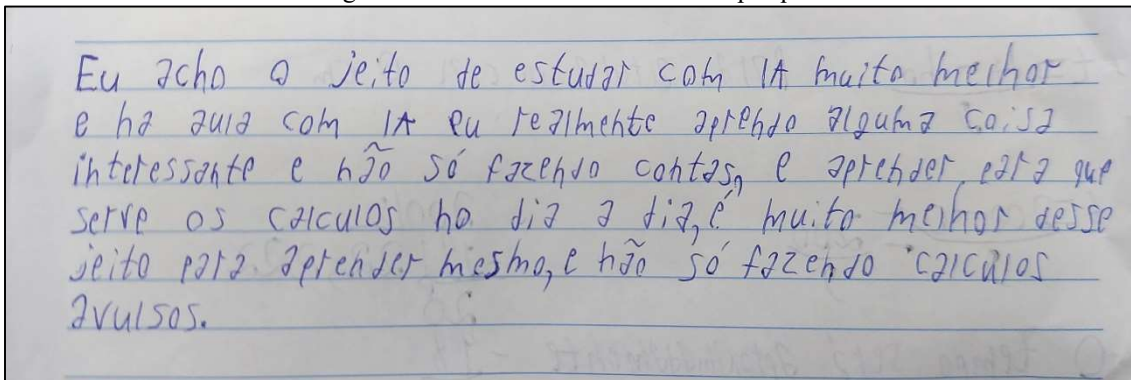 Eu acho o jeito de estudar com IA muito melhor
e na aula com IA eu realmente aprendo alguma coisa
interessante e não só fazendo contas, e aprender para que
serve os calculos no dia a dia, é muito melhor desse
jeito para aprender mesmo, e não só fazendo calculos
avulsos.